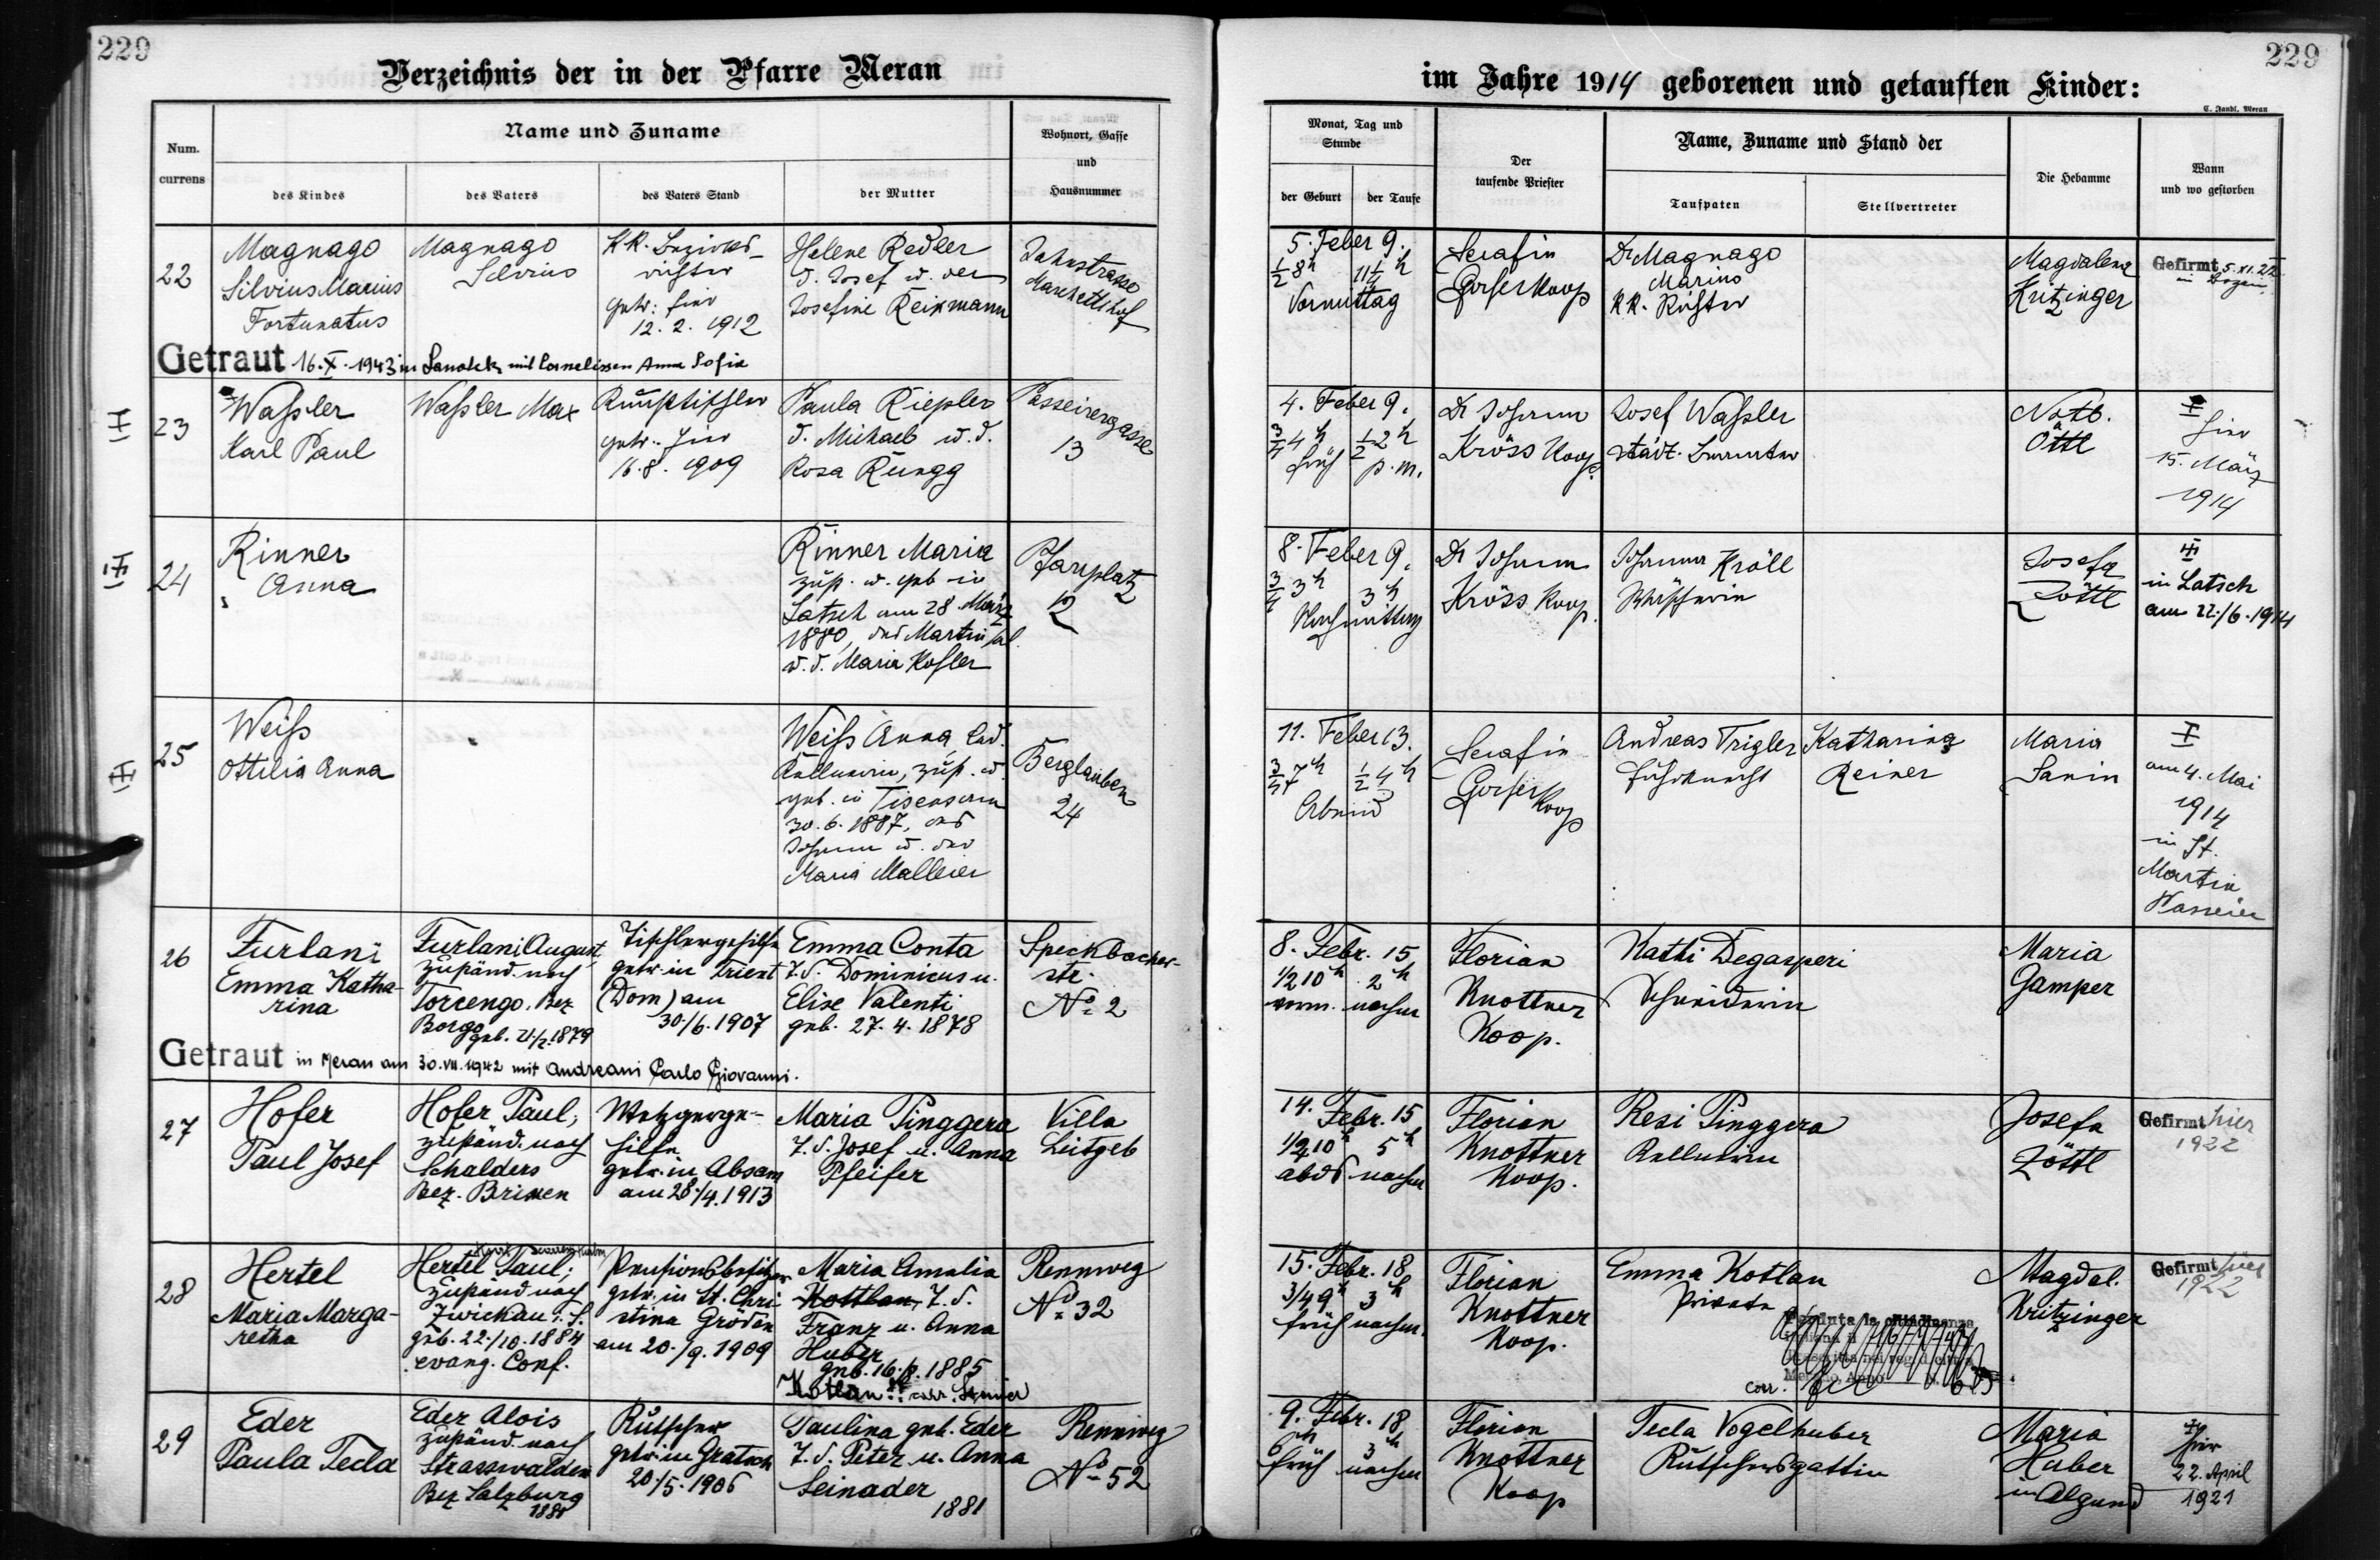 229
Verzeichnis der in der Pfarre Meran
Num. currens
Name und Zuname
des Kindes
des Vaters
des Vaters Stand
der Mutter
Wohnort, Gasse
und
Hausnummer
22
Magnago
Silvius Marius
Fortunatus
Magnago
Silvius
KK. Bezirks-
richter
getr: hier
12. 2. 1912
Helene Redler
d. Josef u. der
Josefine Reinmann
Jahnstrasse
Marchettihof
Getraut 16.X.1943 in mit Cornelissen Anna Sofia
23
Waßler
Karl Paul
Waßler Max
Kunsttischler
getr. hier
16.8. 1909
Paula Riepler
d. Michael u. d.
Rosa Rungg
Passeirergasse
13
24
Rinner
Anna
Rinner Maria
zust. u. geb in
Latsch am 28. März
1880, des Martin sel.
u. d. Maria Kofler
Pfarrplatz
12
25
Weiß
Ottilia Anna
Weiß Anna, led.
Kellnerin, zust. u.
geb. in Tisens am
30.6.1887, des
Johann u. der
Maria Malleier
Berglauben
24
26
Furlani
Emma Katha-
rina
Furlani August,
zuständ. nach
Torcengo. Bez
Borgo
geb. 1879
Tischlergehilfe
getr. in Trient
(Dom) am
30./6.1907
Emma Conta
T. d. Dominicus u.
Elise Valenti
geb. 27. 4. 1878
Speckbacher-
str.
No 2
Getraut in Meran am 30.VII.1942 mit Andreani Carlo Giovanni.
27
Hofer
Paul Josef
Hofer Paul,
zuständ. nach
Schalders
Bez. Brixen
Metzgerge-
hilfe
getr. in Absam
am 28./4.1913
Maria Pinggera
T. d. Josef u. Anna
Pfeifer
Villa
Leitgeb
28
Hertel
Maria Marga-
retha
Hertel Paul;
zuständ nach
Zwickau i. S.
geb. 22./10.1884
evang. Conf.
Pensionsbesitzer
getr. in St. Chri
stina Gröden
am 20./9. 1909
Maria Amalia
Kottlan, T. d.
Franz u. Anna
Huber
geb. 16. 1885
Kotlan
Rennweg
No 32
29
Eder
Paula Tecla
Eder Alois
zuständ. nach
Strasswalden
Bez Salzburg
1881
Kutscher
getr. in Gratsch
20./5. 1906
Paulina geb. Eder
T. d. Peter u. Anna
Leinader
1881
Rennweg
No 52
229
im Jahre 1914 geborenen und getauften Kinder:
C. Jandl, Meran
Monat, Tag und
Stunde
der Geburt
der Taufe
Der
taufende Priester
Name, Zuname und Stand der
Taufpaten
Stellvertreter
Die Hebamme
Wann
und wo gestorben
5. Feber 9.
½8h 11½h
Vormittag
Serafin
Gorfer Koop
Dr Magnago
Marino
KK. Richter
Magdalena
Kritzinger
Gefirmt 5.XI.22
in Bozen
4. Feber 9.
¾4h ½2h
früh p.m.
Dr Johann
Kröss Koop.
Josef Waßler
städt. Beamter
Notb.
Öttl
hier
15. März
1914
8. Feber 9.
¾3h 3h
Nachmittag
Dr Johann
Kröss Koop.
Johanna Kröll
Wäscherin
Josefa
Zöttl
in Latsch
am 22./6.1914
11. Feber 13.
¾7h ½4h
Abend
Serafin
Gorfer Koop
Andreas Trigler
Fuhrknecht
Katharina
Reiner
Maria
Sanin
am 4. Mai
1914
in St.
Martin
Passeier
8. Febr. 15
½10h 2h
vorm. nachm
Florian
Knottner
Koop.
Kathi Degasperi
Schneiderin
Maria
Gamper
14. Febr. 15
½10h 5h
abds. nachm
Florian
Knottner
Koop.
Resi Pinggera
Kellnerin
Josefa
Zöttl
Gefirmt hier
1922
15. Febr. 18
3/49h 3h
früh nachm.
Florian
Knottner
Koop.
Emma Kotlan
Private
corr.
Magdal.
Kritzinger
Gefirmt hier
1922
9. Febr. 18
6h 3h
früh nachm
Florian
Knottner
Koop
Tecla Vogelhuber
Kutschersgattin
Maria
Huber
in Algund
hier
22. April
1921